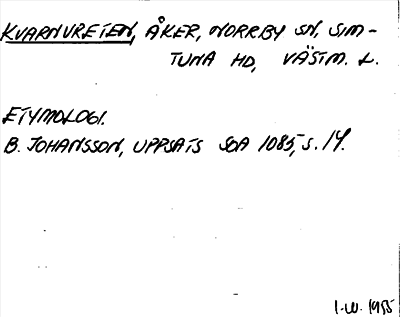 KVARNVRETEN, ÅKER, NORRBY SN, SIM-
TUNA HD, VÄSTM. L.
ETYMOLOGI.
B. JOHANSSON, UPPSATS SOA 1085, S. 14.
I.W. 1955